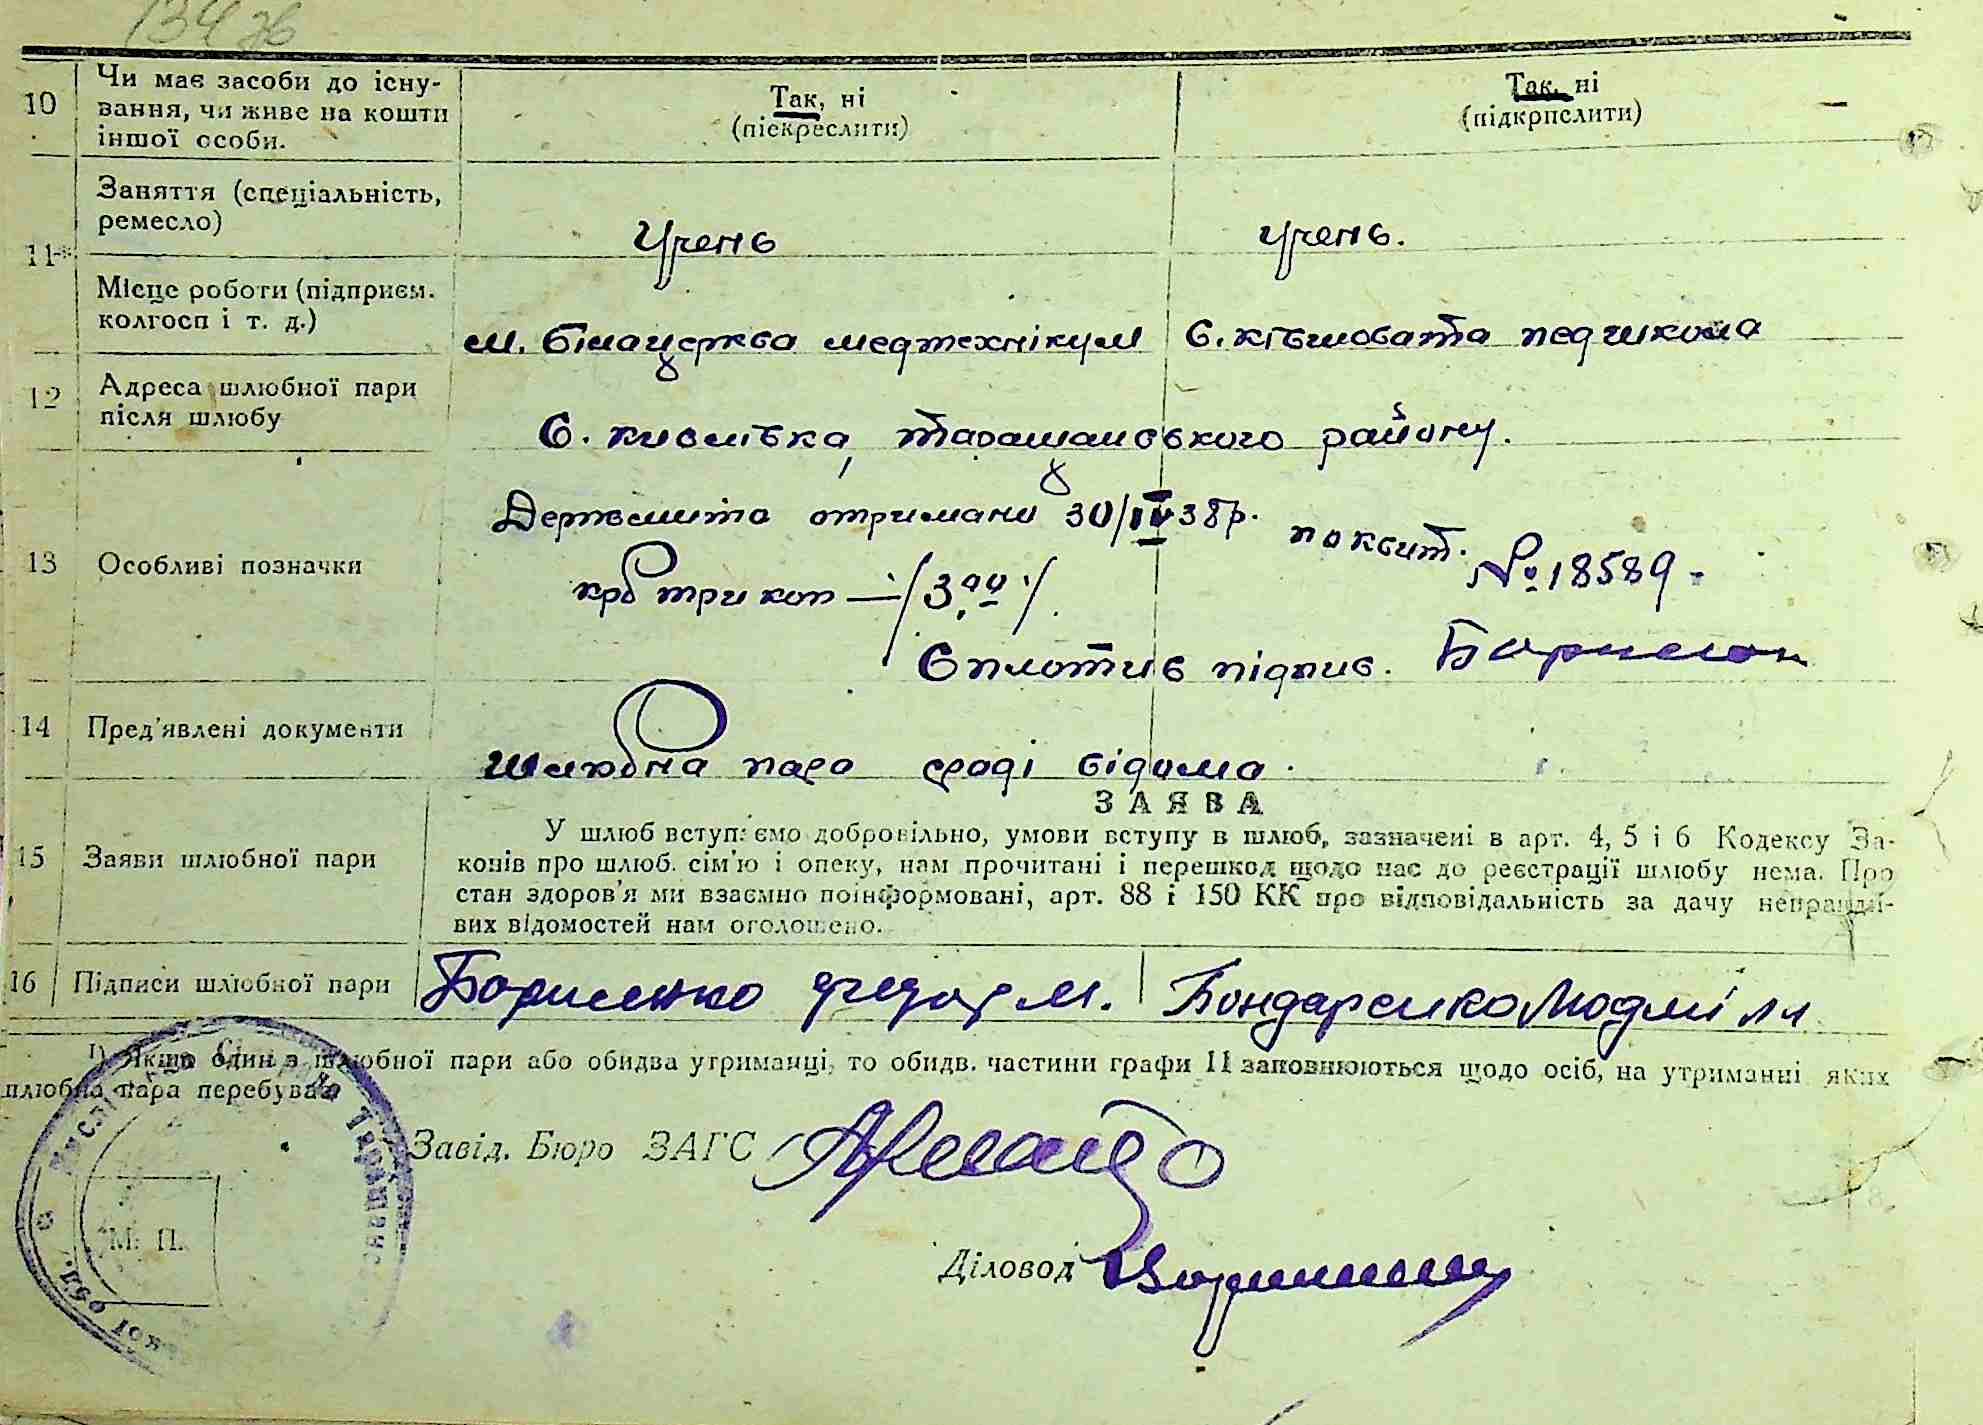 134 зв
10 Чи має засоби до існу-
вання, чи живе на кошти
іншої особи.
Так, ні
(піекреслити)
Так, ні
(підкрпслити)
11*
Заняття (спеціальність,
ремесло)
Учень
учень.
Місце роботи (підприєм.
колгосп і т. д.)
м. Білацерква медтехнікум
с. ківшовата педшкола
12 Адреса шлюбної пари
після шлюбу
С. кислівка, таращанського району.
13 Особливі позначки
Держмита отримано 30/IV 38 р. по квит. № 18589.
крб три коп — /3,00/.
Сплотив підпис. Борисен
14 Пред'явлені документи
Шлюбна пара сраді відома.
15 Заяви шлюбної пари
ЗАЯВА
У шлюб вступаємо добровільно, умови вступу в шлюб, зазначені в арт. 4, 5 і 6 Кодексу За-
конів про шлюб. сім'ю і опеку, нам прочитані і перешкод щодо нас до реєстрації шлюбу нема. Про
стан здоров'я ми взаємно поінформовані, арт. 88 і 150 КК про відповідальність за дачу неправди-
вих відомостей нам оголошено.
16 Підписи шлюбної пари
Борисенко федор м.
Бондаренко Людміла
1) Якщо один з шлюбної пари або обидва утриманці, то обидв. частини графи 11 заповнюються щодо осіб, на утриманні яких
шлюбна пара перебуває
Завід. Бюро ЗАГС
М. П.
Діловод